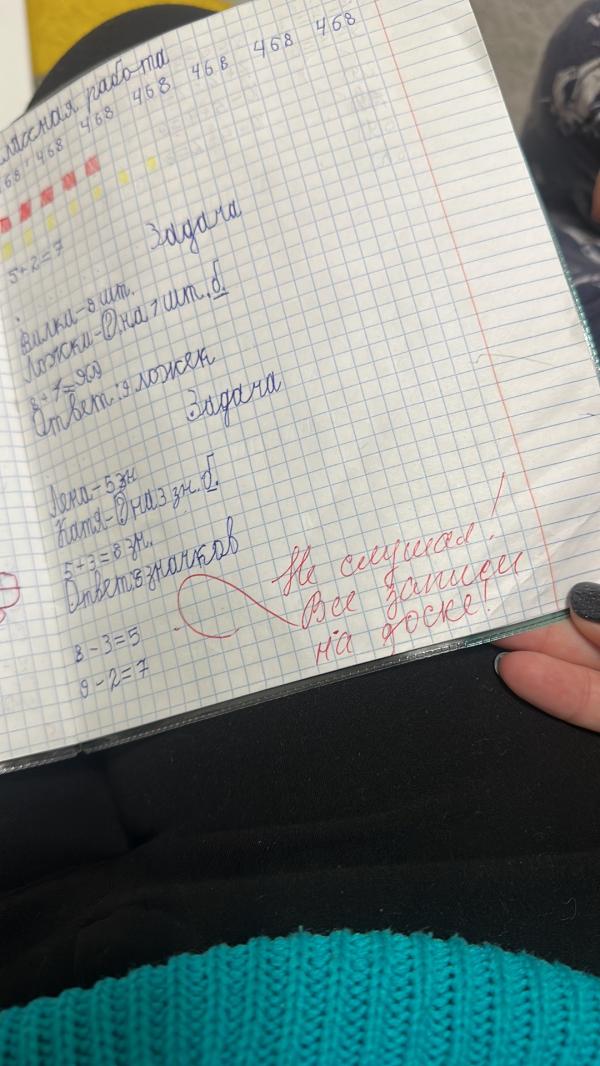 лассная работа
468 468 468 468 468 468 468
5+2=7
Задача
Вилки-8 шт.
Ложки-?, на 1 шт. б.
8+1=9
Ответ: 9 ложек
Задача
Лена-5 зн
Катя-? на 3 зн. б.
5+3=8 зн.
Ответ: 8 значков
8-3=5
9-2=7
Не слушал!
Все записи
на доске!